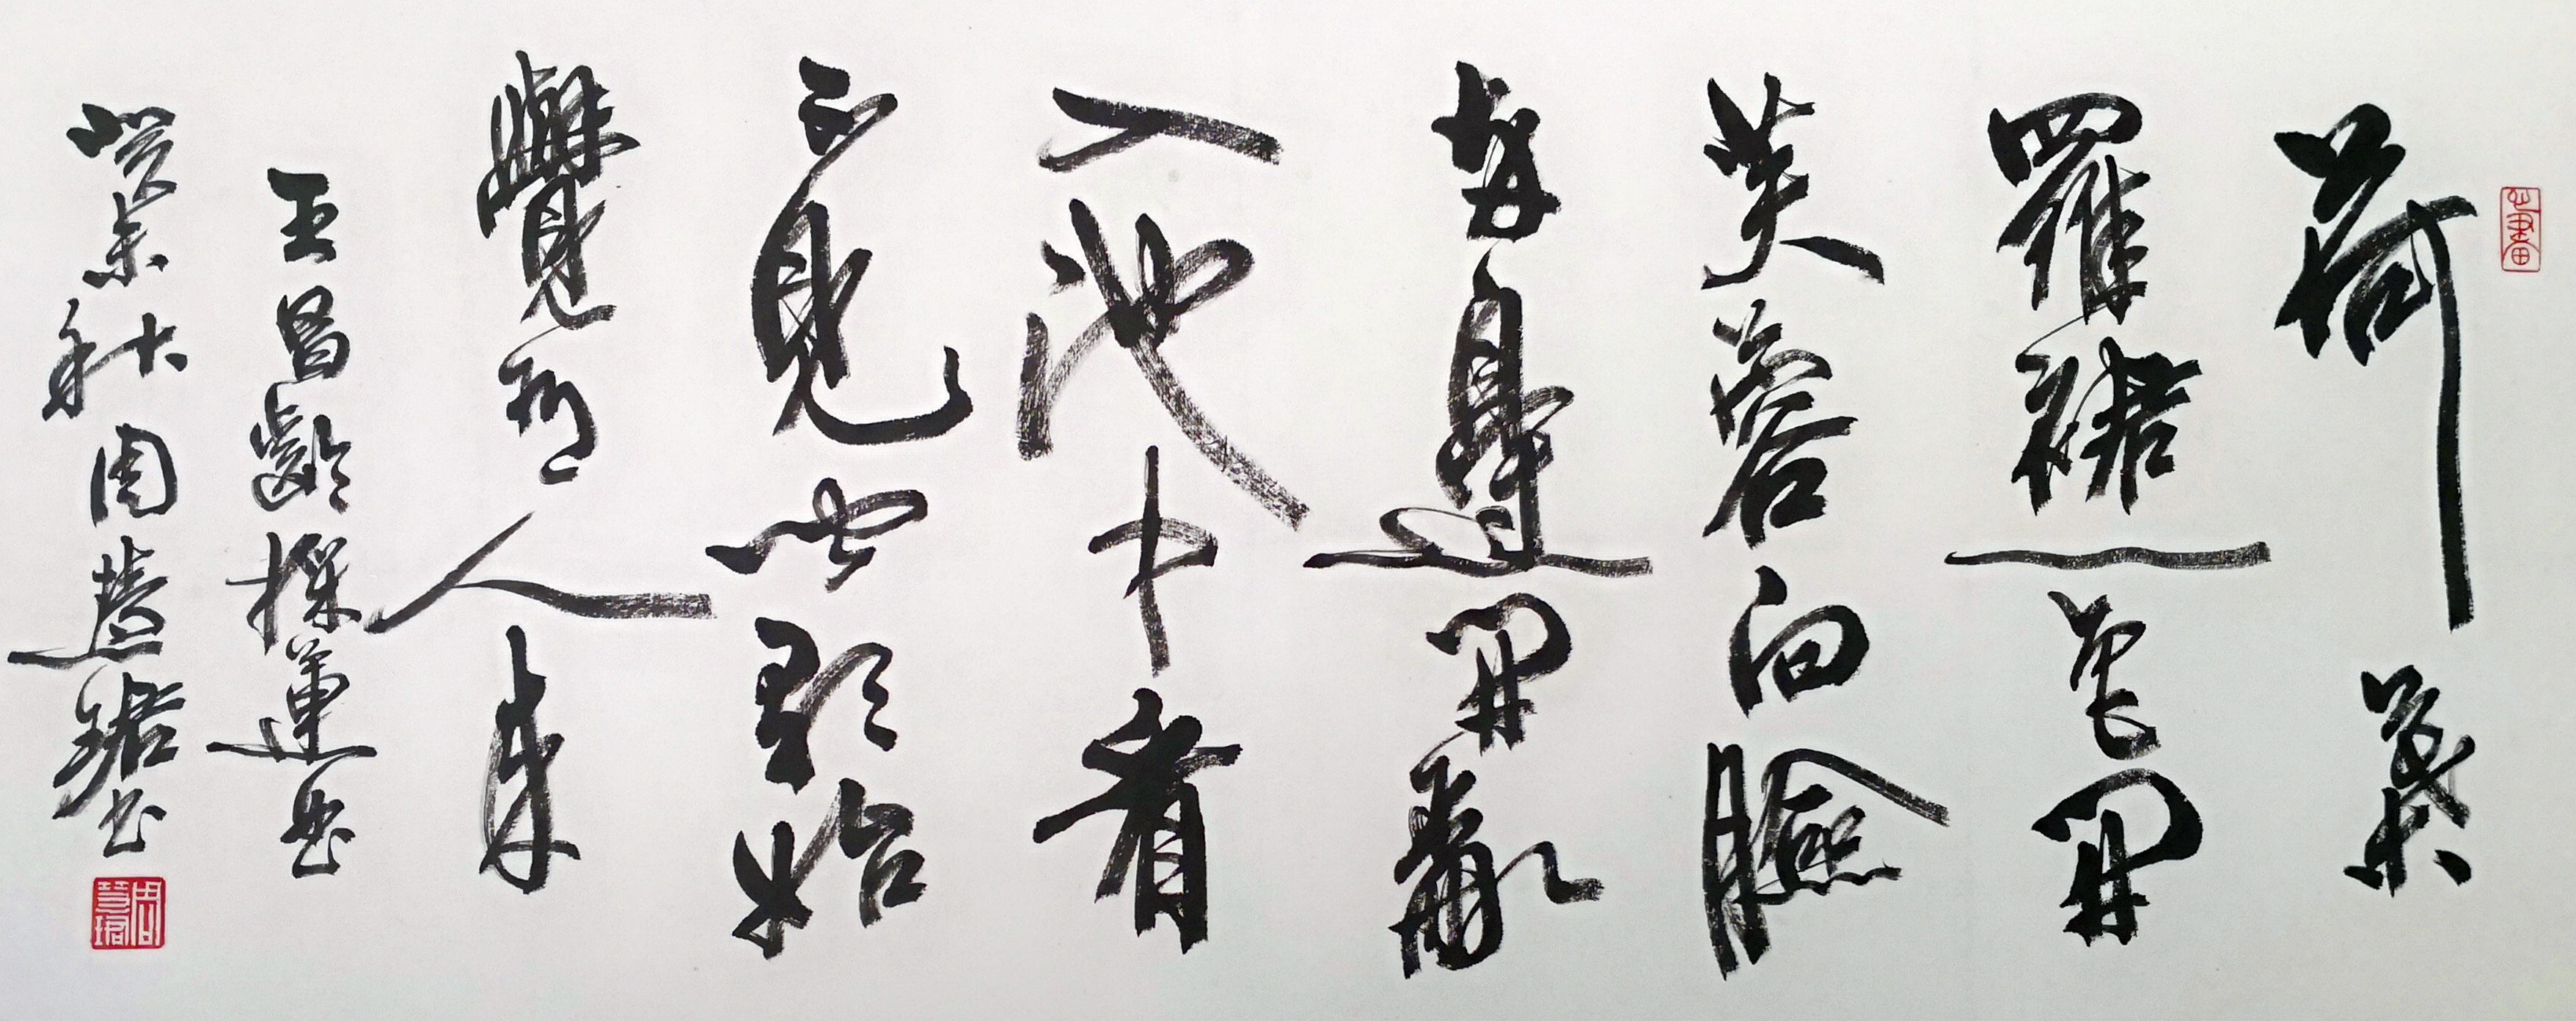 荷葉
羅裙一色開
芙蓉向臉
每邊開亂
入池中看
不見聞歌始
覺有人來
王昌齡採蓮曲
癸未秋周慧珺書
周慧珺